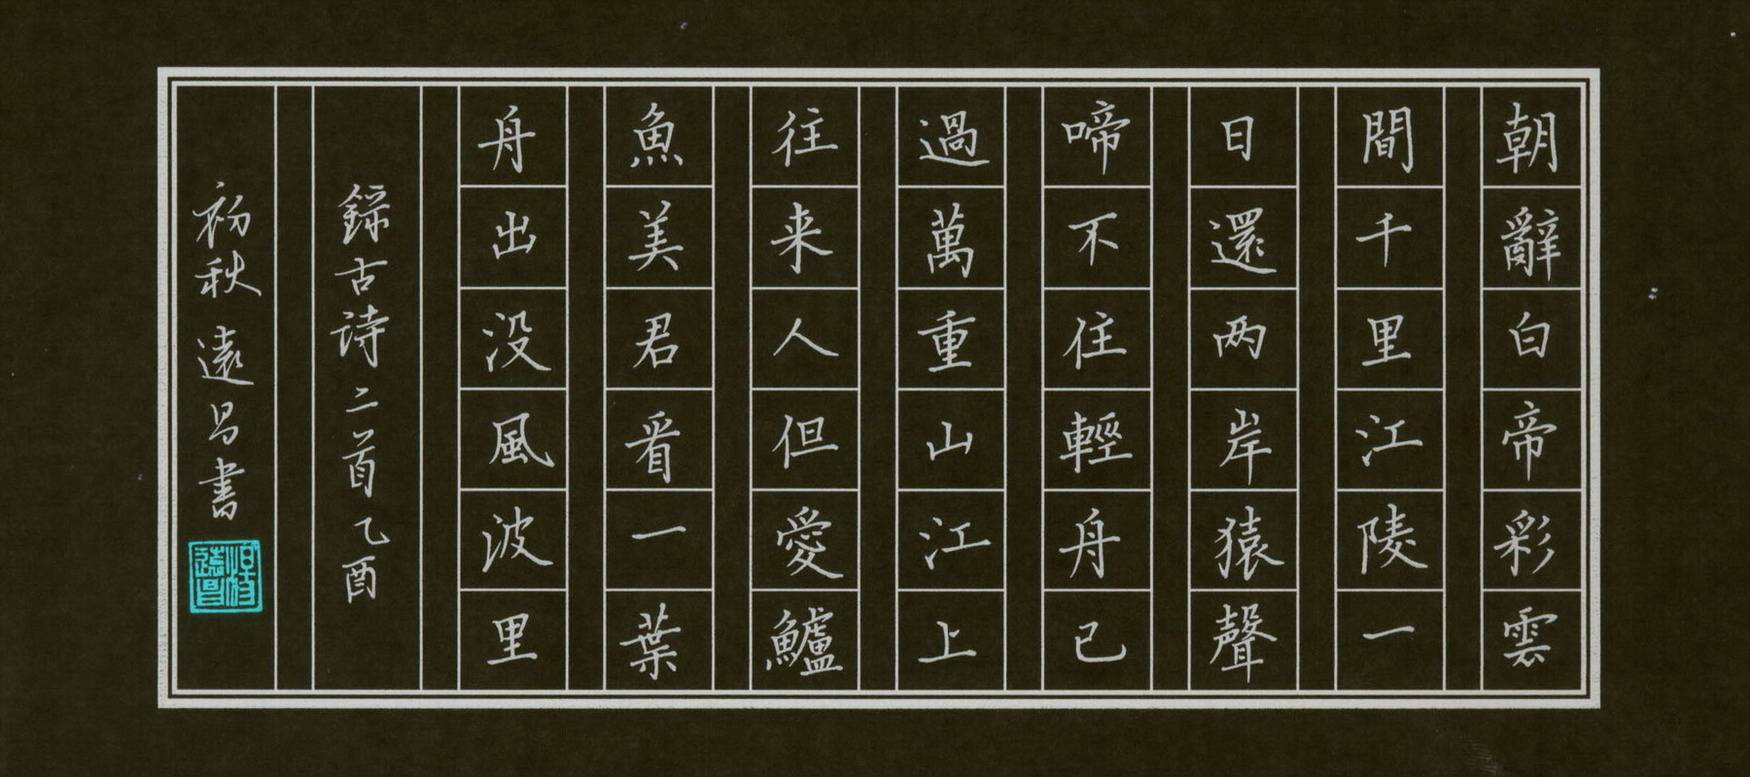 朝辭白帝彩雲
間千里江陵一
日還两岸猿聲
啼不住輕舟已
過萬重山江上
往来人但愛鱸
魚美君看一葉
舟出没風波里
錄古詩二首乙酉
初秋遠昌書